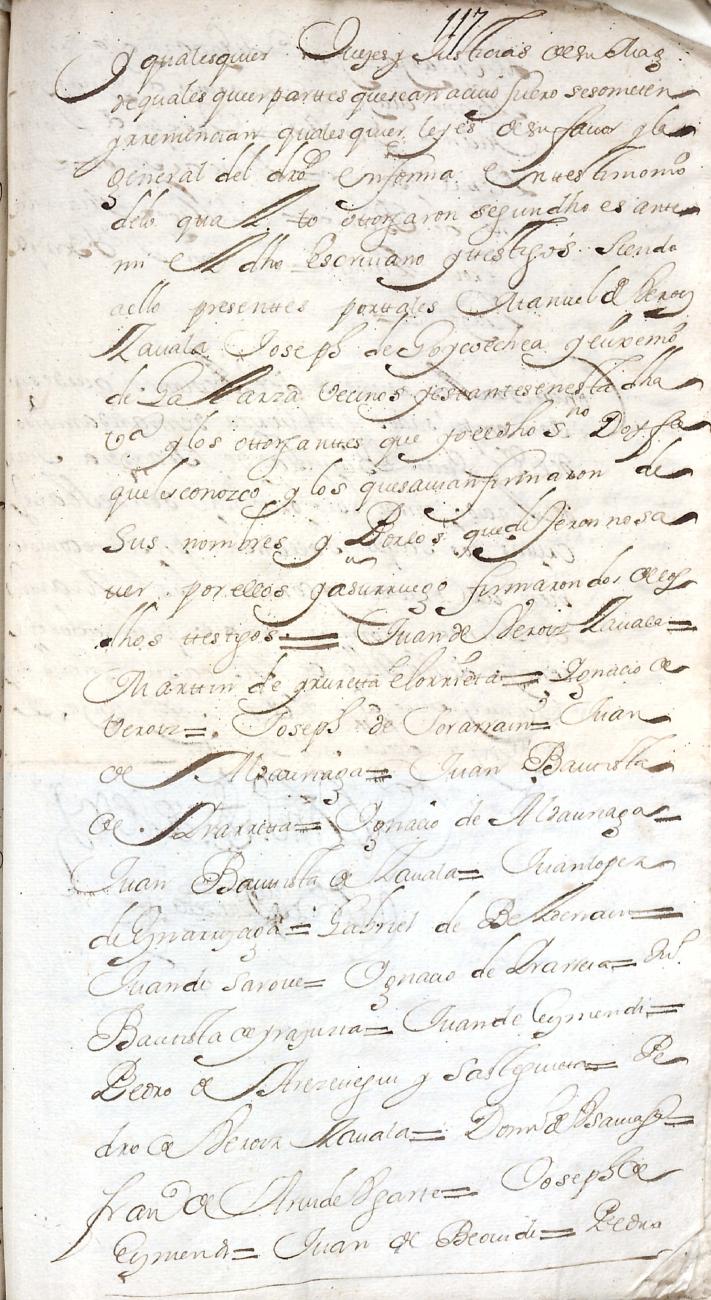 117
y qualesquier Juezes y Justicias de su Mag
de quales quier parttes que sean a cuio fuero se someten
y rrenuncian qualesquier leyes de su favor y la
general del dro en forma en ttestimonio
delo qual lo ottorgaron segun dho es ante
mi el dho escrivano y ttestigos siendo
a ello presenttes por ttales Manuel de Beroiz
Zavala Joseph de Goycoechea y
de Galarza vecinos y estantes en esta dha
va y los ottorganttes que yo el dho sno Doy fee
que les conozco y los que savian firmaron de
sus nombres y Por los que dijeron no sa
ver por ellos y a su rruego firmaron dos de los
dhos ttestigos = Juan de Beroiz Zavala =
Marttin de Yruretta Elorrieta = Ignacio de
Veroiz = Joseph de Sorarrain = Juan
de Alzaurraga = Juan Bautista
de Ybarretta = Ignacio de Alzaurraga =
Juan Bautista de Zavala = Juan Lopez
de = Gabriel de Belaerain =
Juan de Saroue = Ignacio de = Ju.
Bautista de = Juan de Eymendi =
Pedro de y = Pe
dro de Beroiz Zavala = Domo de
Franco de Ugarte = Joseph de
Eymendi = Juan de Beovide = Pedro